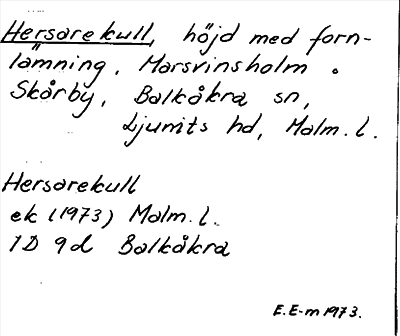 Hersarekull, höjd med forn-
lämning. Marsvinsholm o
Skårby, Balkåkra sn,
Ljunits hd, Malm. l.
Hersarekull
ek (1973) Malm. l.
1D 9d Balkåkra
E. E-m 1973.